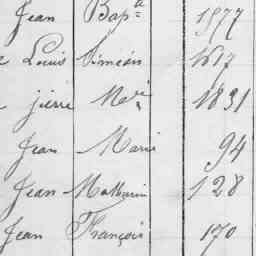 Jean Bapte 1577
Louis Siméon 1617
pierre 1831
Jean Marie 94
Jean Mathurin 128
Jean François 170